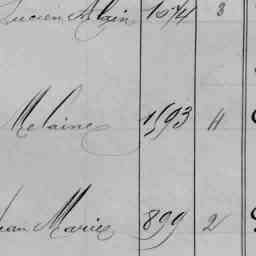 Lucien Alain 1674 8
Melaine 1593 11
Jean Marie 899 2